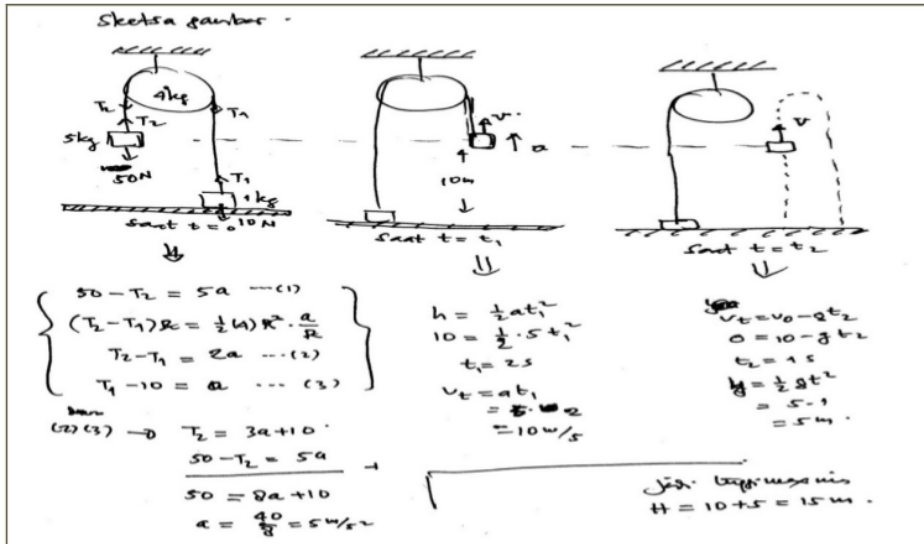 Sketsa gambar.
4kg
T2
T1
T2
5kg
50N
T1
1kg
10N
saat t = 0
v
a
10m
saat t = t1
v
saat t = t2
50 - T2 = 5a ---(1)
(T2 - T1)R = 1/2 (4) R² · a/R
T2 - T1 = 2a ---(2)
T1 - 10 = a ---(3)
(2)(3) → T2 = 3a + 10
50 - T2 = 5a
+
50 = 8a + 10
a = 40/8 = 5 m/s²
h = 1/2 at1²
10 = 1/2 · 5 t1²
t1 = 2s
vt = at1
= 5 · 2
= 10 m/s
vt = v0 - gt2
0 = 10 - gt2
t2 = 1s
y = 1/2 gt²
= 5·1
= 5m.
Jadi tinggi
H = 10 + 5 = 15 m.